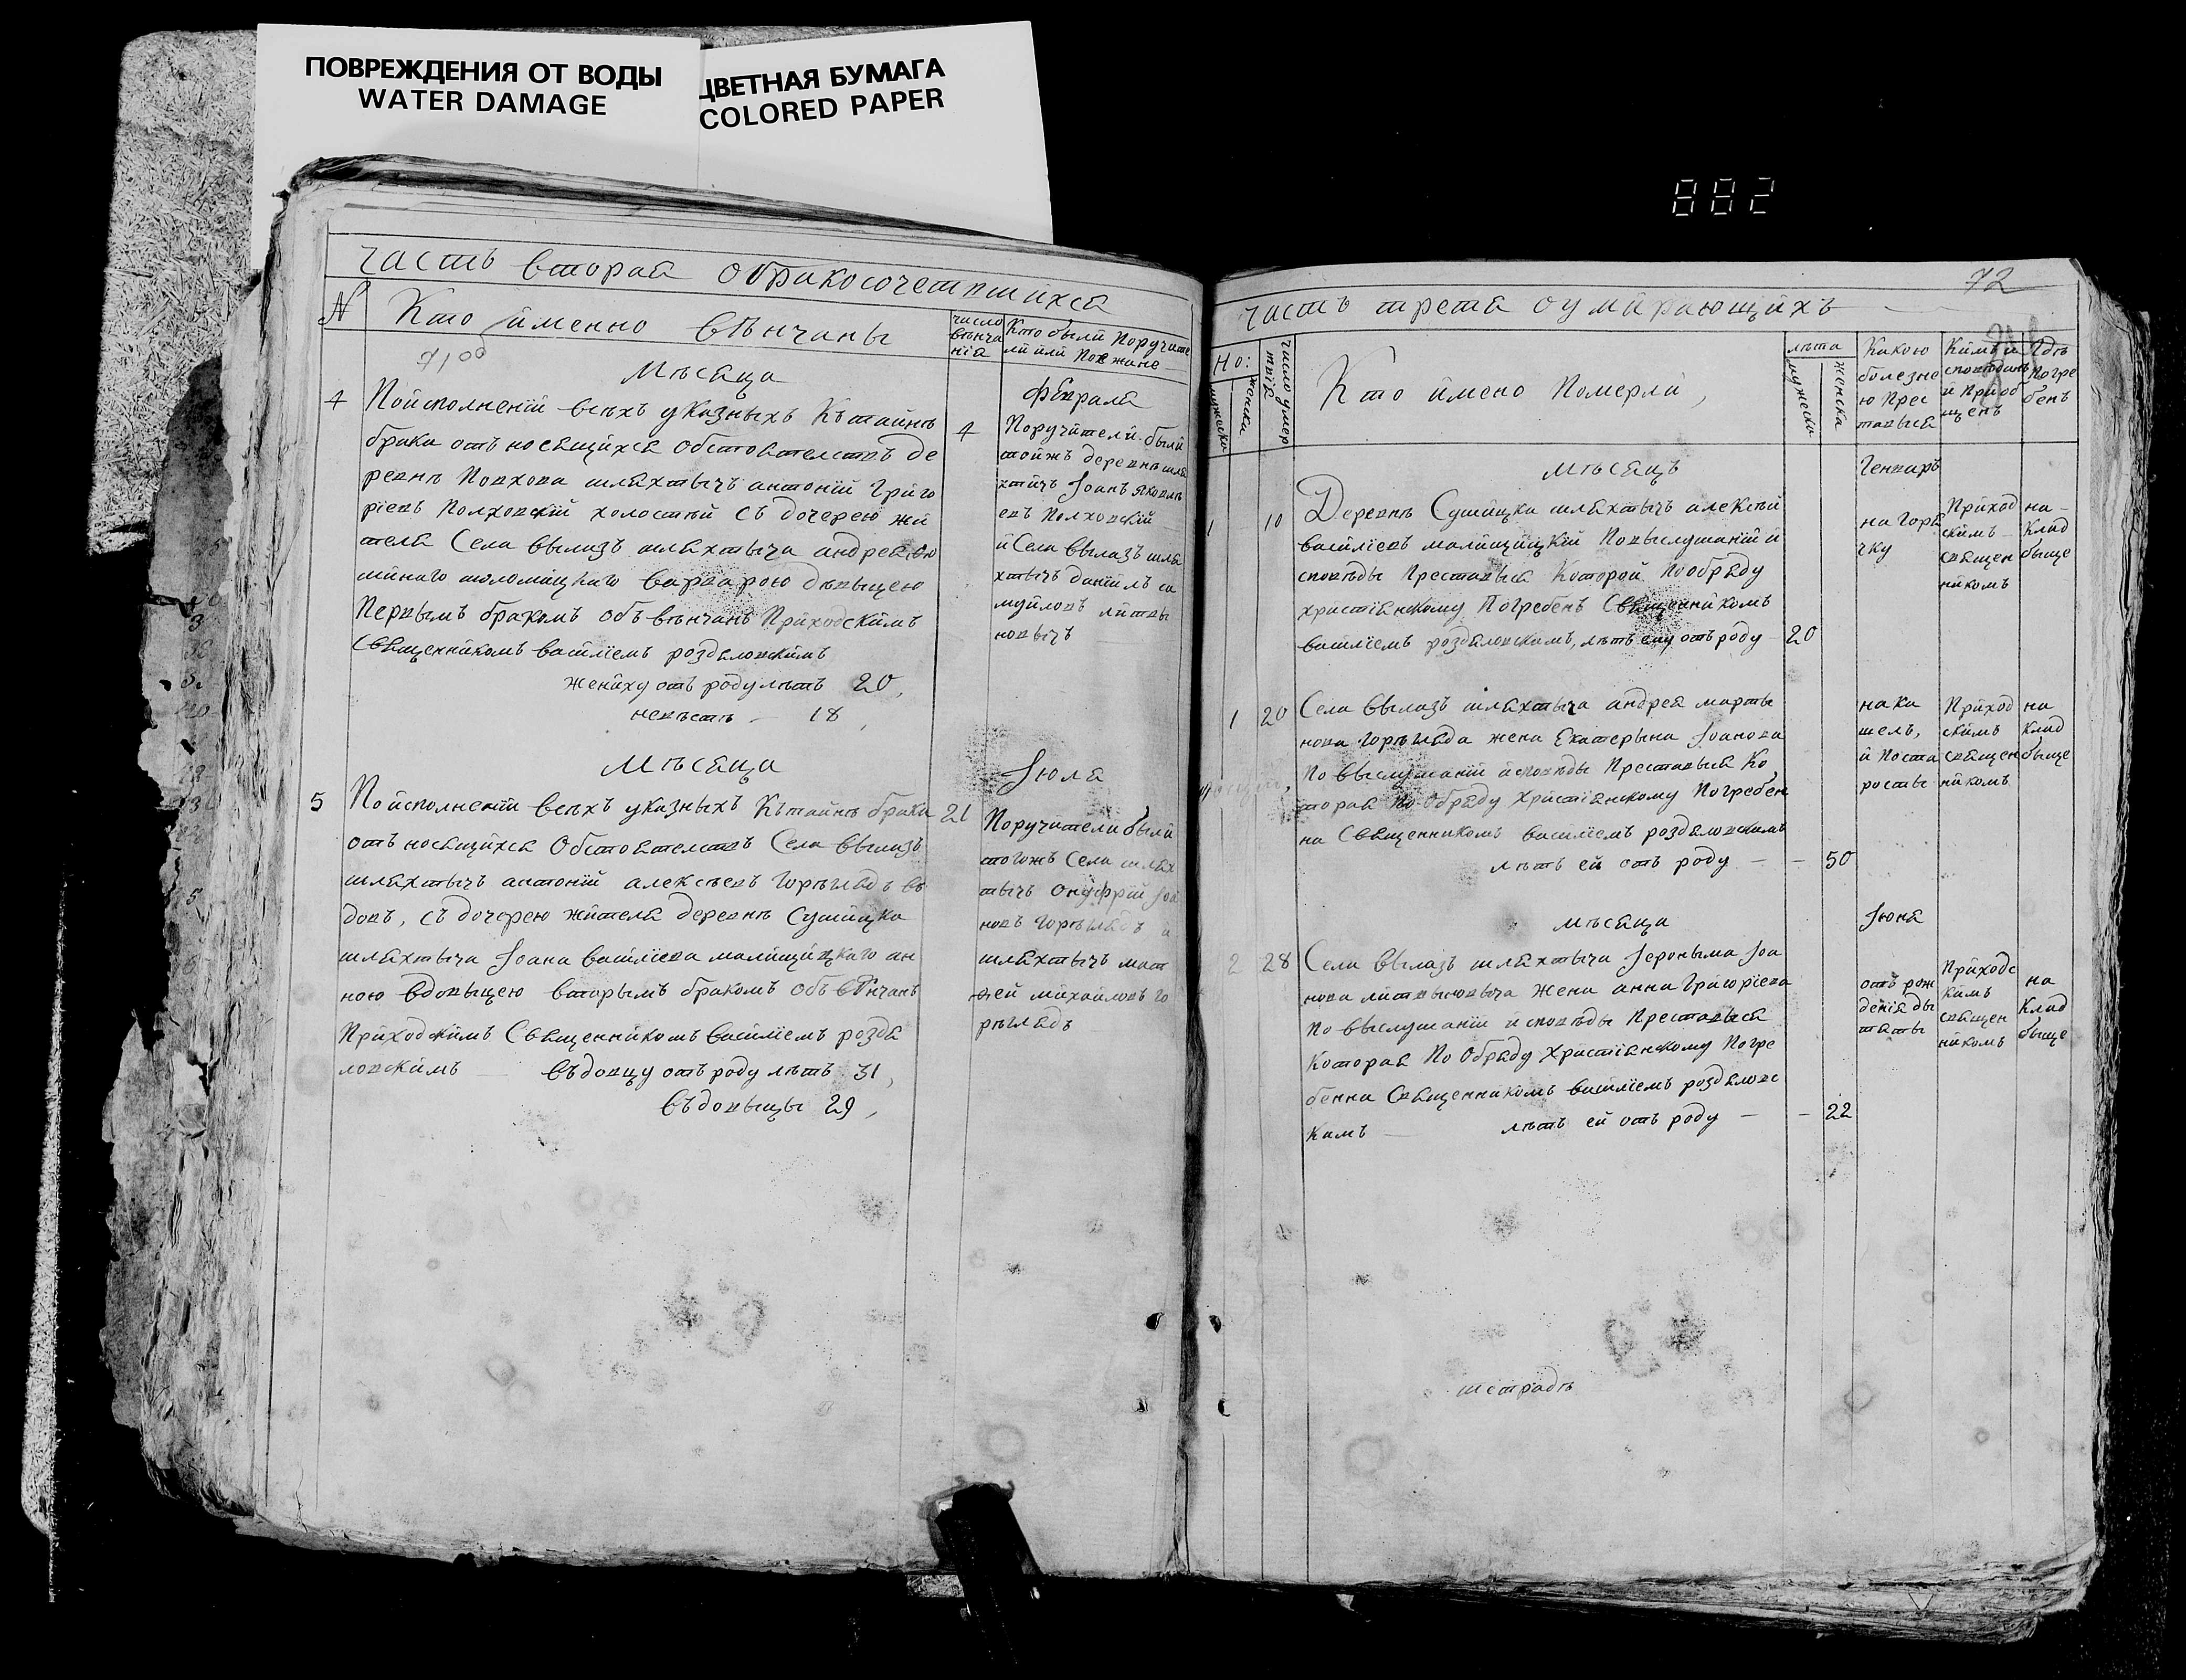 ПОВРЕЖДЕНИЯ ОТ ВОДЫ
WATER DAMAGE
ЦВЕТНАЯ БУМАГА
COLORED PAPER
882
часть вторая обракосочетавшихся
N
Кто именно вѣнчаны
число
вѣнча
нія
Кто были Поручите
ли или Поезжане
Мѣсяца
Февраля
4
Поисполненіи всѣхъ указныхъ Къ тайнѣ
брака отъ носящихся обстоятелствъ де
ревнѣ Полхова шляхтычъ антоній Григо
ріевъ Полховскій холостый съ дочерею жи
теля Села вылазъ шляхтыча андрея
варварою дѣвыцею
Первымъ бракомъ объ вѣнчанъ Приходскимъ
Священникомъ василіемъ роздяловскимъ
жениху отъ роду лѣтъ 20,
невѣстѣ - 18
4
Поручители были
тойжъ деревнѣ шля
хтичъ Іоанъ яковлѣ
евъ Полховскій
и Села вылазъ шля
хтычъ даніилъ са
муйловъ литвы
новычъ
Мѣсяца
Іюля
5
По исполненіи всѣхъ указныхъ Къ тайнѣ брака
отъ носящихся Обстоятелствъ Села вылазъ
шляхтычъ антоній алексѣевъ Горѣглядъ въ
довъ, съ дочерею жителя деревнѣ Сушицка
шляхтыча Іоана василіева малищицкаго ан
ною вдовыцею вторымъ бракомъ объ вѣнчанъ
Приходскимъ Священникомъ василіемъ роздя
ловскимъ въдовцу отъ роду лѣтъ 31,
въдовыцы 29,
21
Поручители были
тогожъ Села шлях
тычъ Онуфрій Іоа
новъ Горѣглядъ и
шляхтычъ мат
ѳей михайловъ Го
рѣглядъ
72
часть трета о умирающихъ
Но:
мужеска
женска
число умер
Кто имено Померли,
лѣта
мужеска
женска
Какою
болезне
ю Прес
тавыся
Кимъ и
сповѣданъ
и Приоб
щенъ
Гдѣ
Погре
бенъ
мѣсяцъ
Генваръ
1
10
Деревнѣ Сушицка шляхтычъ алексѣй
василіевъ малищицкій Повыслушаніи и
сповѣды Преставыся Которой Пообряду
христіянскому Погребенъ Священникомъ
василіемъ роздяловскимъ, лѣтъ ему отъ роду 20
на горя
чку
Приход
скимъ
священ
никомъ
на
Клад
быще
1
20
Села вылазъ шляхтыча андрея марты
нова Горѣгляда жена Екатерына Іоанова
По выслушаніи исповѣды Преставыся Ко
торая По Обряду Христіянскому Погребен
на Священникомъ василіемъ роздяловскимъ
лѣтъ ей отъ роду - - 50
на ка
шель,
и Поста
росты
Приход
скимъ
священ
никомъ
на
Клад
быще
мѣсяца
Іюня
2
28
Села вылазъ шляхтыча Іероныма Іоа
нова жена анна Григоріева
По выслушаніи исповѣды Преставыся
Которая По Обряду Христіянскому Погре
бенна Священникомъ василіемъ роздяловс
кимъ лѣтъ ей отъ роду - - 22
отъ рож
денія ды
тяты
Приходс
кимъ
священ
никомъ
на
Клад
быще
тетрадь